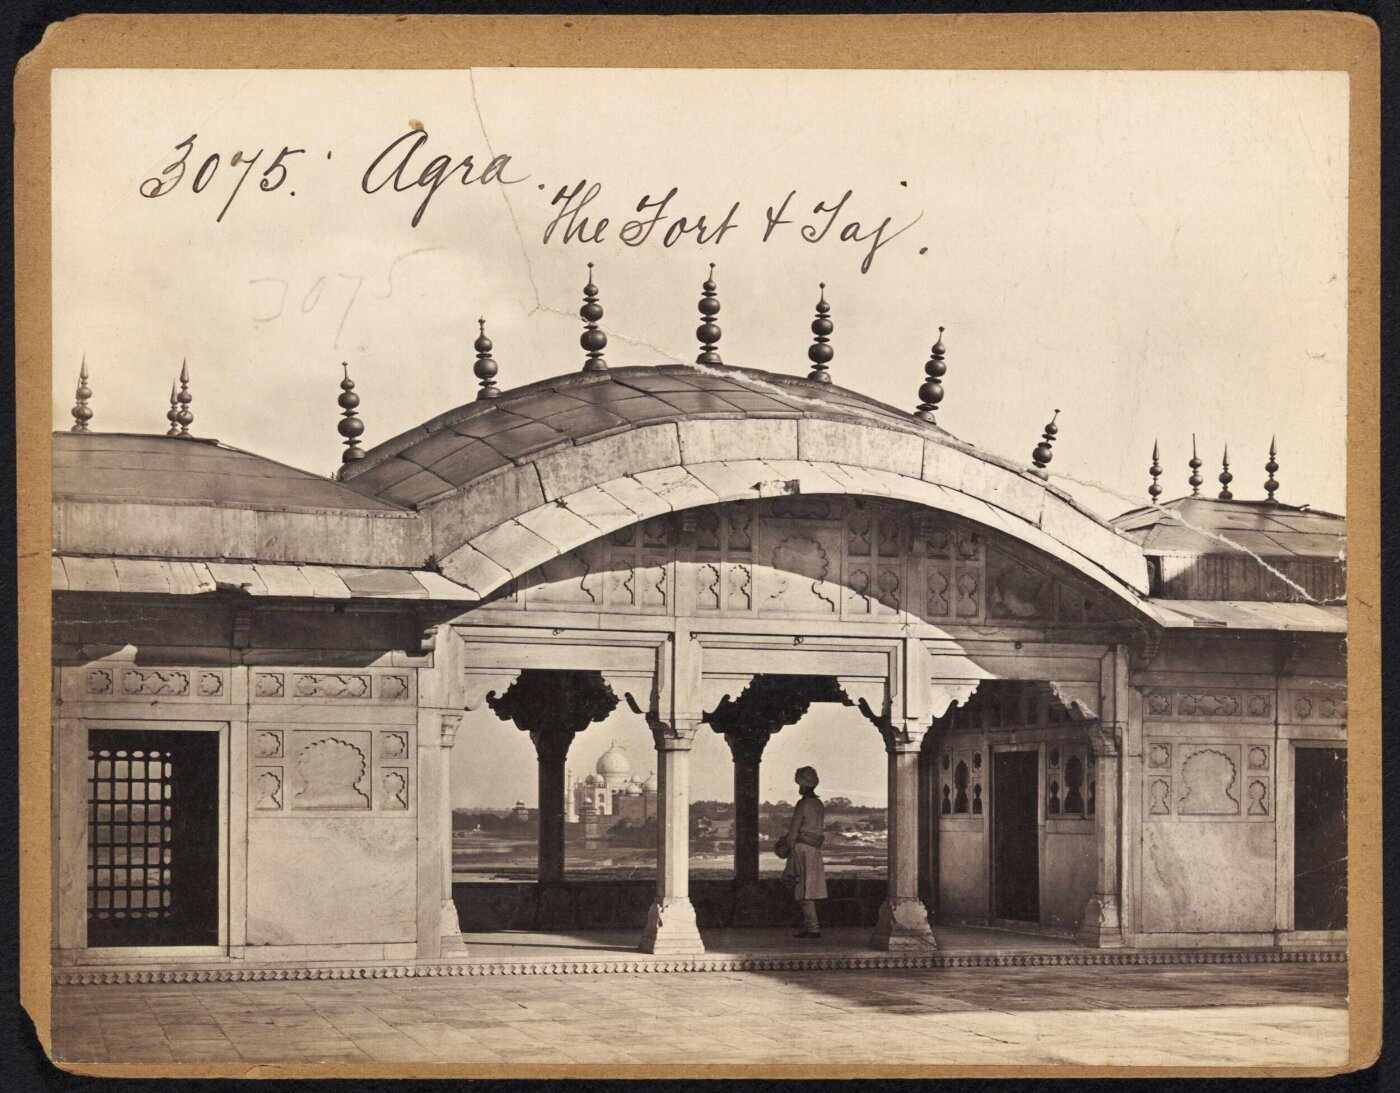 3075. Agra.
The Fort & Taj.
3075